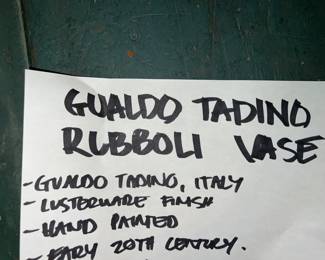 GUALDO TADINO
RUBBOLI VASE
- GUALDO TADINO, ITALY
- LUSTERWARE FINISH
- HAND PAINTED
- EARY 20TH CENTURY.